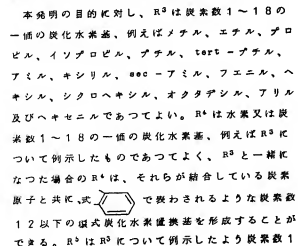 本発明の目的に対し、R³は炭素数1〜18の
一価の炭化水素基、例えばメチル、エチル、プロ
ピル、イソプロピル、ブチル、tert-ブチル、
アミル、キシリル、sec-アミル、フエニル、ヘ
キシル、シクロヘキシル、オクタデシル、アリル
及びヘキセニルであつてよい。R⁴は水素又は炭
素数1〜18の一価の炭化水素基、例えばR³に
ついて例示したものであつてよく、R³と一緒に
なつた場合のR⁴は、それらが結合している炭素
原子と共に、式 で表わされるような炭素数
12以下の環式炭化水素置換基を形成することが
できる。R⁵はR³について例示したよう炭素数1